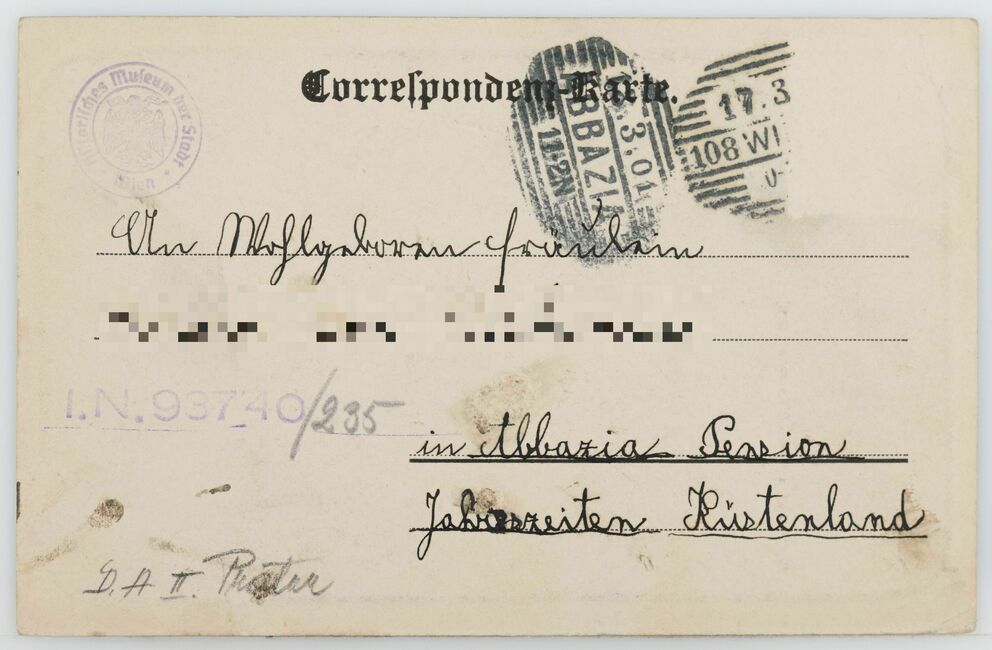 Correspondenz-Karte.
Historisches Museum der Stadt
Wien
ABBAZIA
3.01
11-2N
17.3
108 WI
An Wohlgeboren Fräulein
I.N. 93740/235
in Abbazia Pension
Jahreszeiten Küstenland
D. A II. Prater